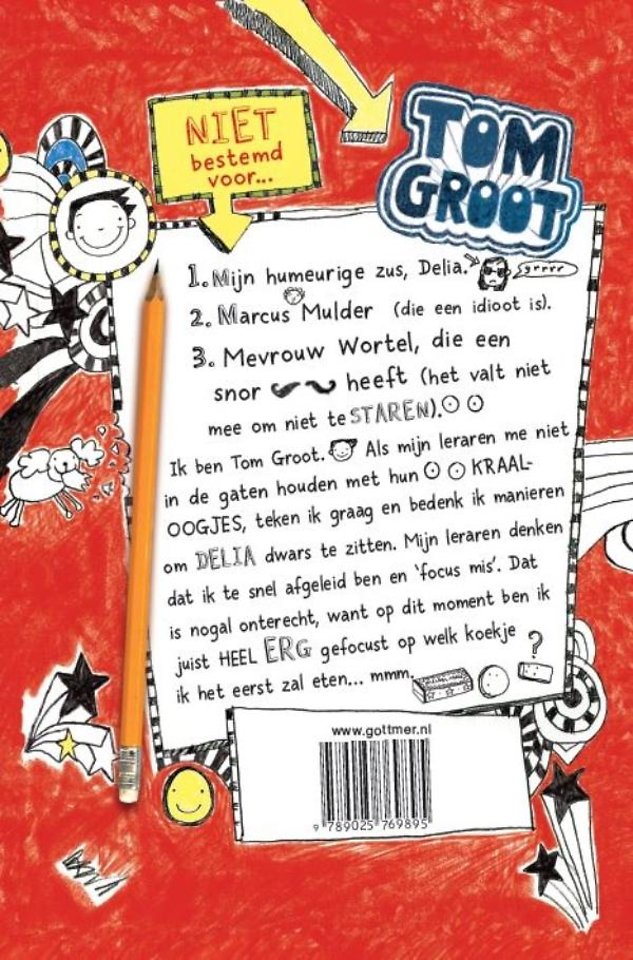 NIET
bestemd
voor...
TOM
GROOT
1. Mijn humeurige zus, Delia.
grrrr
2. Marcus Mulder (die een idioot is).
3. Mevrouw Wortel, die een
snor heeft (het valt niet
mee om niet te STAREN).
Ik ben Tom Groot. Als mijn leraren me niet
in de gaten houden met hun KRAAL-
OOGJES, teken ik graag en bedenk ik manieren
om DELIA dwars te zitten. Mijn leraren denken
dat ik te snel afgeleid ben en 'focus mis'. Dat
is nogal onterecht, want op dit moment ben ik
juist HEEL ERG gefocust op welk koekje ?
ik het eerst zal eten... mmm.
www.gottmer.nl
9 789025 769895